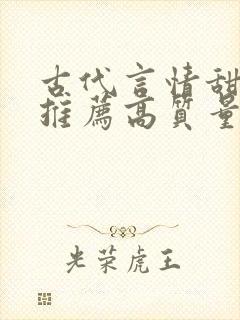 古代言情甜
推薦高質量
光荣虎王